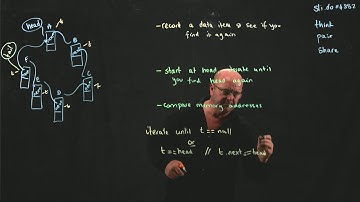 head
A
B
C
D
E
F
- record a data item & see if you
find it again
- start at head, iterate until
you find head again
- compare memory addresses
iterate until t == null
or
t == head // t.next == head
sli.do #4882
think
pair
share